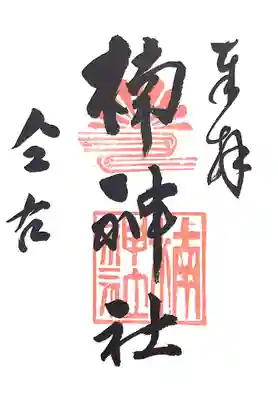 奉拝
楠神社
楠
神社